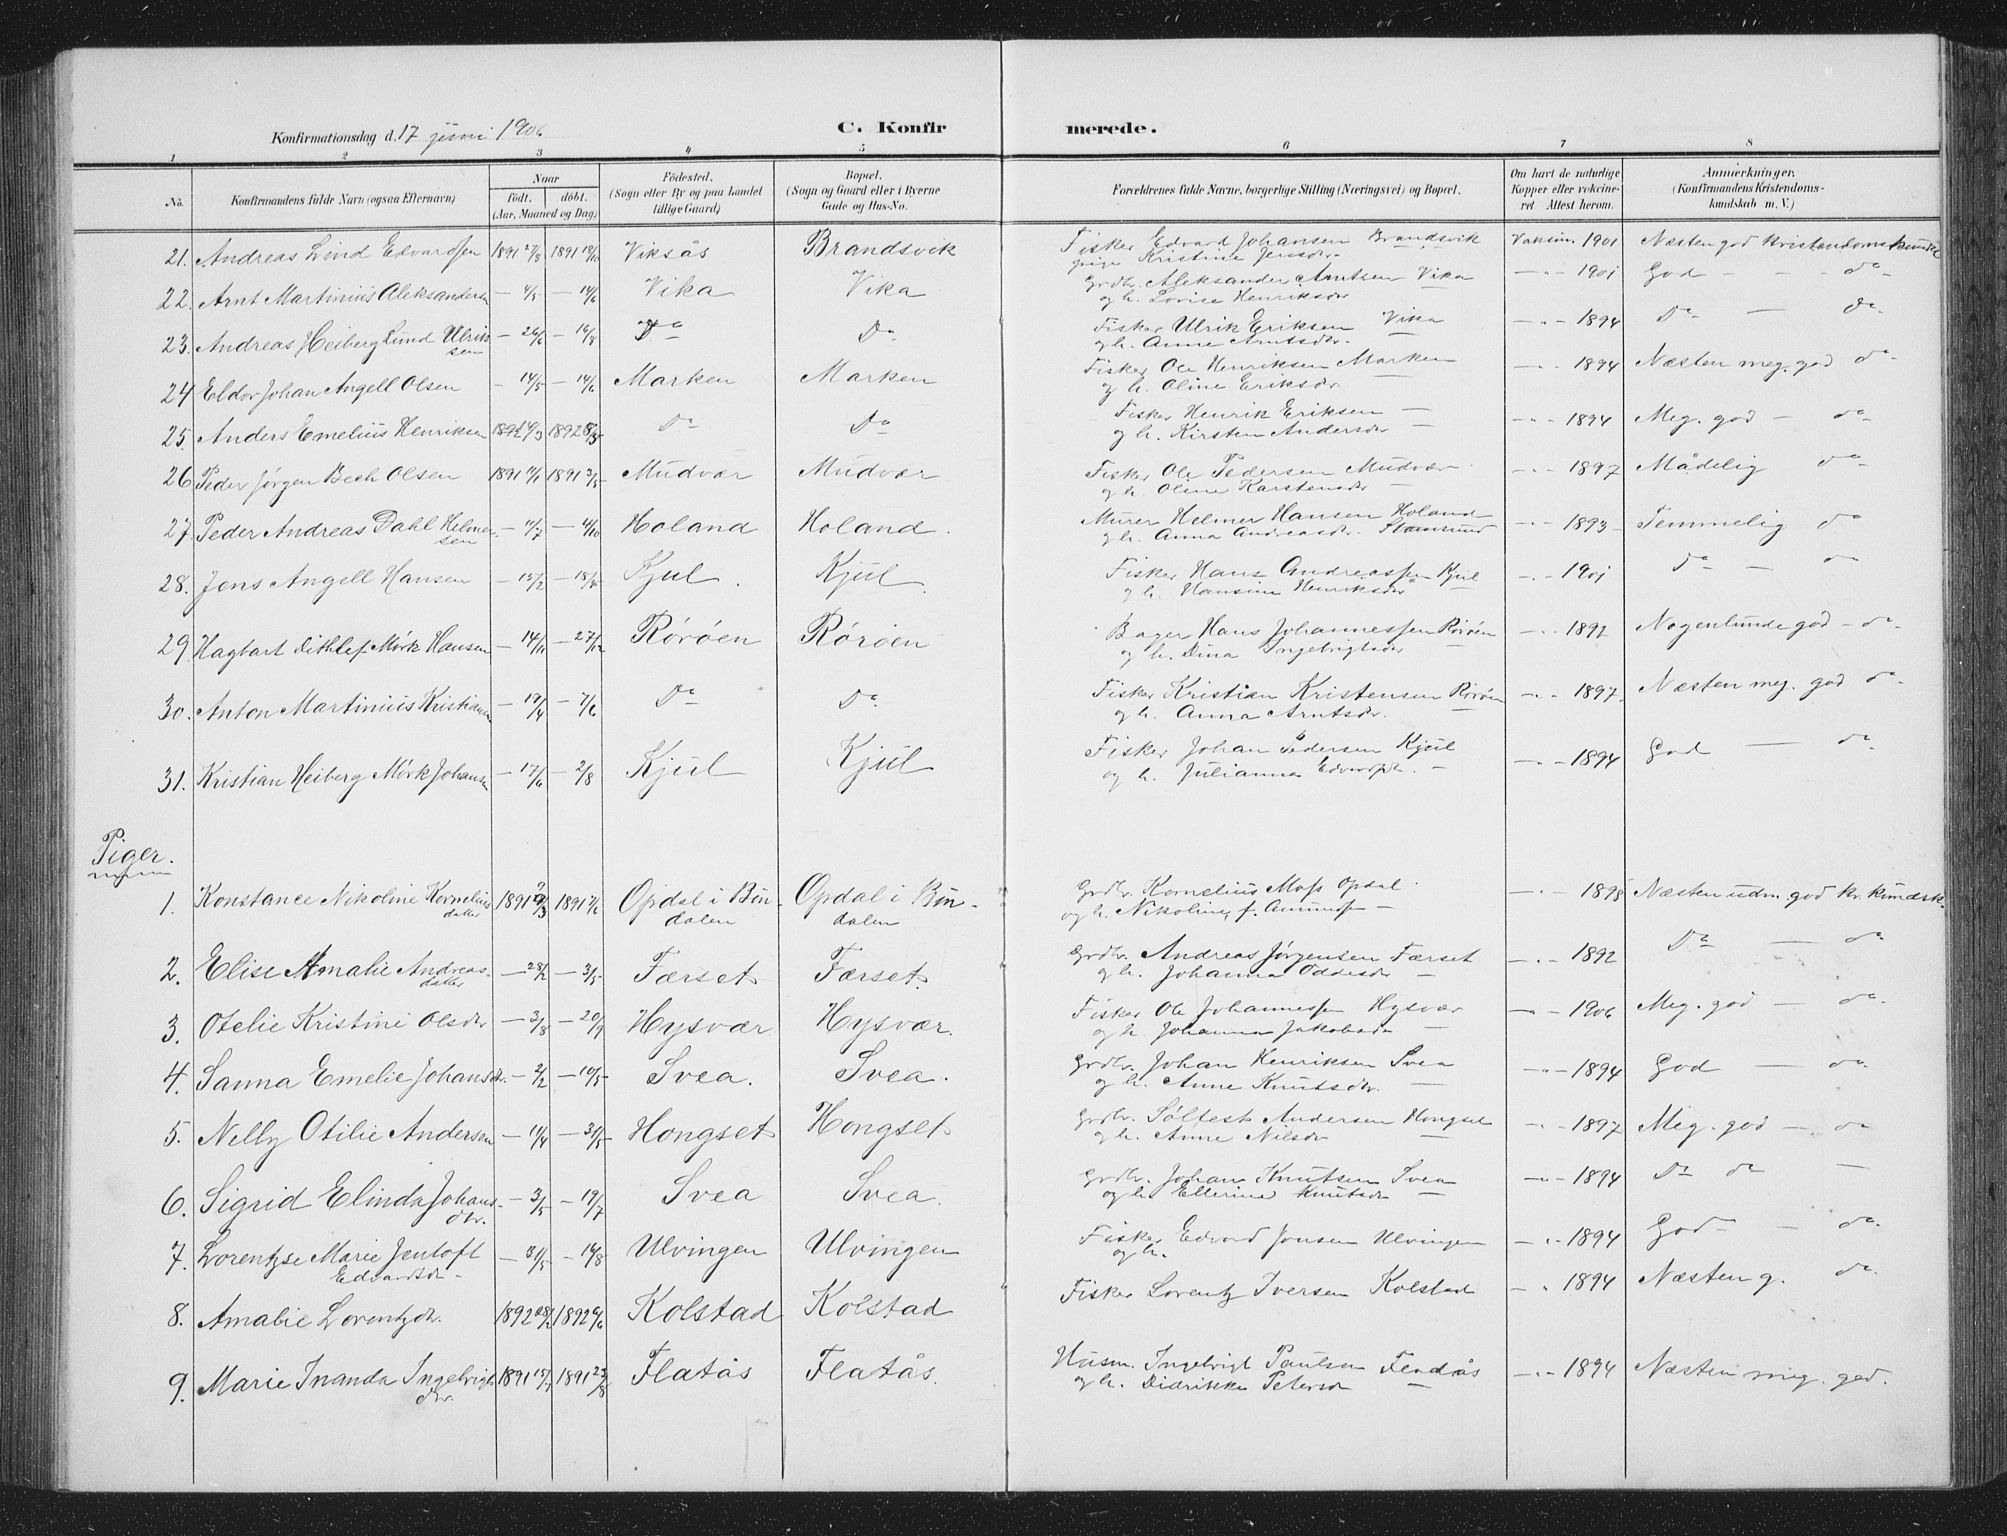 Konfirmationsdag d. 17 juni 1906
C. Konfirmerede.
1 2 3 4 5 6 7 8
No. Konfirmandens fulde Navn (ogsaa Efternavn) Naar födt. döbt. (Aar, Maaned og Dag) Födested. (Sogn eller By og paa Landet tillige Gaard) Bopæl. (Sogn og Gaard eller i Byerne Gade og Hus-No. Forældrenes fulde Navne, borgerlige Stilling (Næringsvei) og Bopæl. Om havt de naturlige Kopper eller vakcineret. Attest herom. Anmærkninger. (Konfirmandens Kristendomskundskab m. V.)
21. Andreas Lind Edvardsen 1891 27/8 1891 18/10 Viksås Brandsvik Fisker Edvard Johansen Brandsvik Vaksin. 1901 Næsten god kristendomskundsk
pige Kristine Jensdr.
22. Arnt Martinius Aleksandersen — 4/5 — 14/6 Vika Vika Grdbr. Aleksander Arntsen Vika — " — 1901 God — — do
og h. Lovise Henriksdr
23. Andreas Heiberg Lund Ulriksen — 26/6 — 16/8 Do Do Fisker Ulrik Eriksen Vika — " — 1894 Do — do
og h. Anne Arntsdr.
24 Eldor Johan Angell Olsen — 14/5 — 14/6 Marken Marken Fisker Ole Henriksen Marken — " — 1894 Næsten meg. god do
og h. Oline Eriksdr
25. Anders Emelius Henriksen 1892 1892 8/5 Do Do Fisker Henrik Eriksen — — " — 1894 Meg. god — do
og h. Kirsten Andersdr
26 Peder Jørgen Bech Olsen 1891 1891 Mudvær Mudvær Fisker Ole Pedersen Mudvær — " — 1897 Mådelig do
og h. Oline Karstensdr
27. Peder Andreas Dahl Helmersen — 11/7 — 4/10 Holand Holand. Murer Helmer Hansen Holand — " — 1893 Temmelig do
og h. Anna Andreasdr. Stamsund
28. Jens Angell Hansen — 15/2 — 18/5 Kjul. Kjul. Fisker Hans Andreassen Kjul — " — 1901 do — do
og h. Hansine Henriksdr
29. Hagbart Dithlef Mørk Hansen — 14/11 — 27/12 Rørøen Rørøen Bager Hans Johannessen Rørøen — " — 1892 Nogenlunde god — do
og h. Dina Ingebrigtsdr
30. Anton Martinius Kristiansen — 19/4 — 7/6 Do Do Fisker Kristian Kristensen Rørøen — " — 1897 Næsten meg. god do
og h. Anna Arntsdr.
31. Kristian Heiberg Mørk Johansen — 17/6 — 2/8 Kjul Kjul Fisker Johan Pedersen Kjul — " — 1894 God — do
og h. Julianna Edvardsdr. —
Piger.
1. Konstance Nikoline Korneliusdatter 1891 1891 7/6 Opdal i Bindalen Opdal i Bindalen Grdbr. Kornelius Moss Opdal. — " — 1898 Næsten udm. god kr. kundsk.
og h. Nikoline, f. Amundsen —
2. Elise Amalie Andreasdatter — 28/2 — 3/5 Færset Færset Grdbr. Andreas Jørgensen Færset — " — 1892 Do — do
og h. Johanna Oddesdr —
3. Otelie Kristine Olsdr — 3/8 — 20/9 Hysvær Hysvær. Fisker Ole Johannessen Hysvær — " — 1906 Meg. god — do
og h Johanna Jakobsdr —
4. Sanna Emelie Johansdr. — 2/2 — 10/5 Svea. Svea. Grdbr. Johan Henriksen Svea — " — 1894 God — do
og h. Anne Knutsdr. —
5. Nelly Otilie Andersen — 11/4 — 31/5 Hongset Hongset Grdbr. Søltest Andersen Hongset — " — 1897 Meg. god — do
og h. Anne Nilsdr —
6. Sigrid Elinda Johansdtr. — 3/5 — 19/7 Svea Svea. Grdbr. Johan Knutsen Svea — " — 1894 Do do —
og h. Ellerine Knutsdr —
7. Lorentze Marie Jentoft Edvardsdr — 31/5 — 16/8 Ulvingen Ulvingen Fisker Edvard Jonsen Ulvingen — " — 1894 God — do
og h.
8. Amalie Lorentzdtr. 1892 28/2 1892 6/6 Kolstad Kolstad Fisker Lorentz Iversen Kolstad — " 1894 Næsten g. do
9. Marie Inanda Ingebrigtsdtr. 1891 1891 23/8 Flatås Flatås. Husm. Ingebrigt Paulsen Flatås — " — 1894 Næsten meg. god.
og h. Didrikke Petersdr —